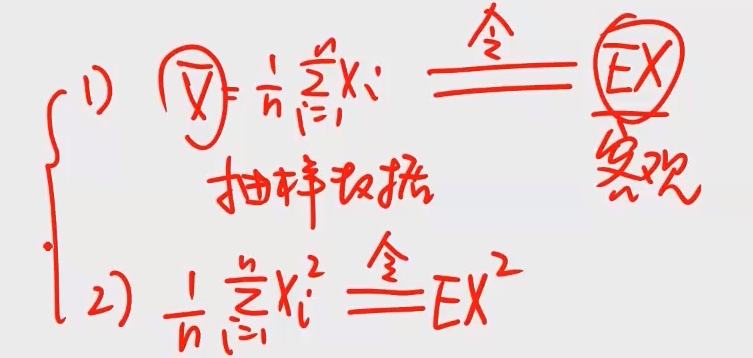 1) X̄ = 1/n ∑_{i=1}^{n} X_i 令= EX
抽样数据 客观
2) 1/n ∑_{i=1}^{n} X_i^2 令= EX^2